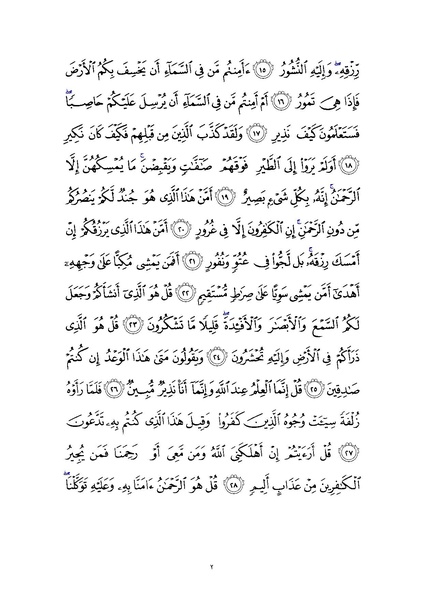 رِّزْقِهِۦۖ وَإِلَيْهِ ٱلنُّشُورُ ١٥ ءَأَمِنتُم مَّن فِى ٱلسَّمَآءِ أَن يَخْسِفَ بِكُمُ ٱلْأَرْضَ
فَإِذَا هِىَ تَمُورُ ١٦ أَمْ أَمِنتُم مَّن فِى ٱلسَّمَآءِ أَن يُرْسِلَ عَلَيْكُمْ حَاصِبًاۖ
فَسَتَعْلَمُونَ كَيْفَ نَذِيرِ ١٧ وَلَقَدْ كَذَّبَ ٱلَّذِينَ مِن قَبْلِهِمْ فَكَيْفَ كَانَ نَكِيرِ
١٨ أَوَلَمْ يَرَوْا۟ إِلَى ٱلطَّيْرِ فَوْقَهُمْ صَـٰٓفَّـٰتٍ وَيَقْبِضْنَۚ مَا يُمْسِكُهُنَّ إِلَّا
ٱلرَّحْمَـٰنُۚ إِنَّهُۥ بِكُلِّ شَىْءٍۭ بَصِيرٌ ١٩ أَمَّنْ هَـٰذَا ٱلَّذِى هُوَ جُندٌ لَّكُمْ يَنصُرُكُم
مِّن دُونِ ٱلرَّحْمَـٰنِۚ إِنِ ٱلْكَـٰفِرُونَ إِلَّا فِى غُرُورٍ ٢٠ أَمَّنْ هَـٰذَا ٱلَّذِى يَرْزُقُكُمْ إِنْ
أَمْسَكَ رِزْقَهُۥۚ بَل لَّجُّوا۟ فِى عُتُوٍّ وَنُفُورٍ ٢١ أَفَمَن يَمْشِى مُكِبًّا عَلَىٰ وَجْهِهِۦٓ
أَهْدَىٰٓ أَمَّن يَمْشِى سَوِيًّا عَلَىٰ صِرَٰطٍ مُّسْتَقِيمٍ ٢٢ قُلْ هُوَ ٱلَّذِىٓ أَنشَأَكُمْ وَجَعَلَ
لَكُمُ ٱلسَّمْعَ وَٱلْأَبْصَـٰرَ وَٱلْأَفْـِٔدَةَۖ قَلِيلًا مَّا تَشْكُرُونَ ٢٣ قُلْ هُوَ ٱلَّذِى
ذَرَأَكُمْ فِى ٱلْأَرْضِ وَإِلَيْهِ تُحْشَرُونَ ٢٤ وَيَقُولُونَ مَتَىٰ هَـٰذَا ٱلْوَعْدُ إِن كُنتُمْ
صَـٰدِقِينَ ٢٥ قُلْ إِنَّمَا ٱلْعِلْمُ عِندَ ٱللَّهِ وَإِنَّمَآ أَنَا۠ نَذِيرٌ مُّبِينٌ ٢٦ فَلَمَّا رَأَوْهُ
زُلْفَةً سِيٓـَٔتْ وُجُوهُ ٱلَّذِينَ كَفَرُوا۟ وَقِيلَ هَـٰذَا ٱلَّذِى كُنتُم بِهِۦ تَدَّعُونَ
٢٧ قُلْ أَرَءَيْتُمْ إِنْ أَهْلَكَنِىَ ٱللَّهُ وَمَن مَّعِىَ أَوْ رَحِمَنَا فَمَن يُجِيرُ
ٱلْكَـٰفِرِينَ مِنْ عَذَابٍ أَلِيمٍ ٢٨ قُلْ هُوَ ٱلرَّحْمَـٰنُ ءَامَنَّا بِهِۦ وَعَلَيْهِ تَوَكَّلْنَاۖ
٢